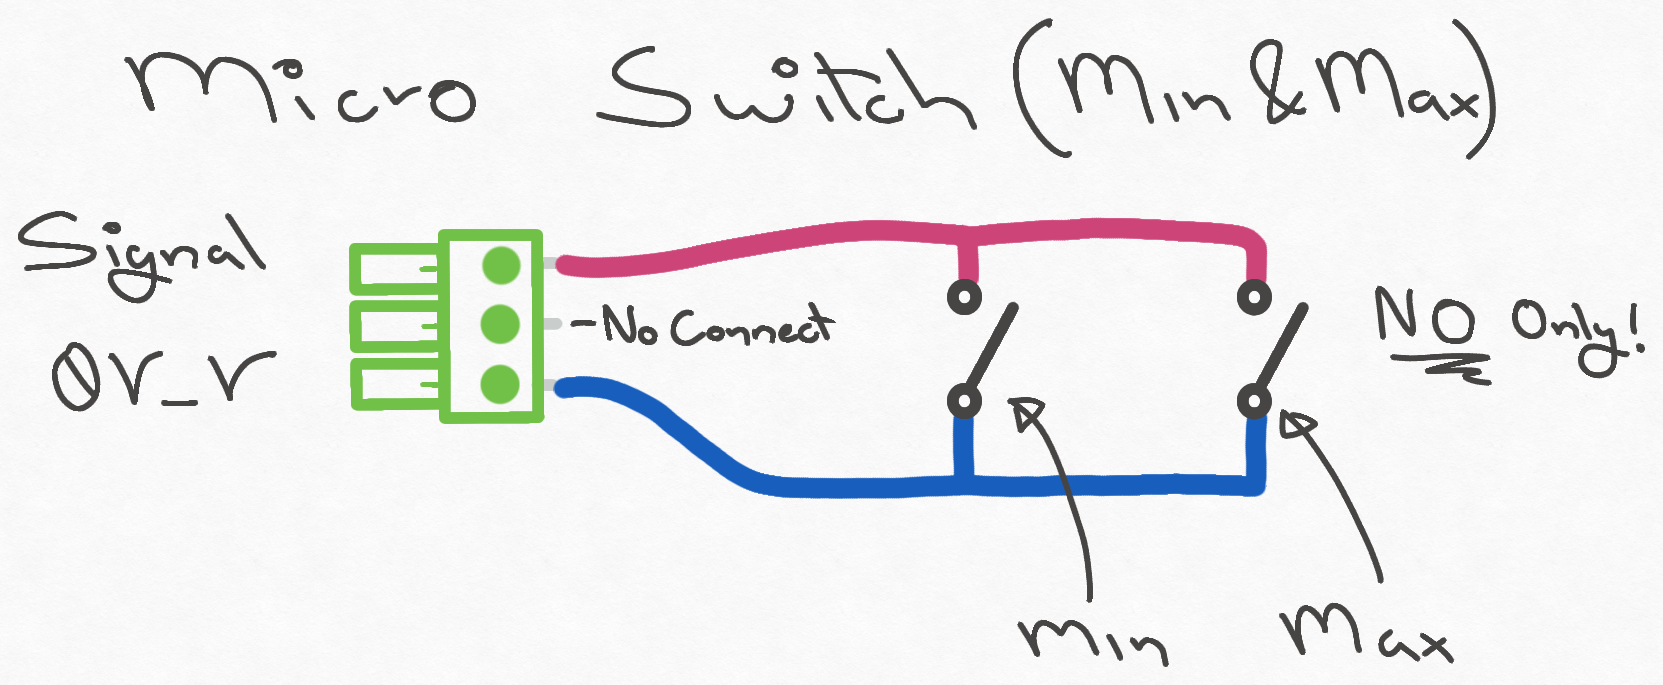 Micro Switch (Min & Max)
Signal
- No Connect
NO Only!
0V_V
Min
Max